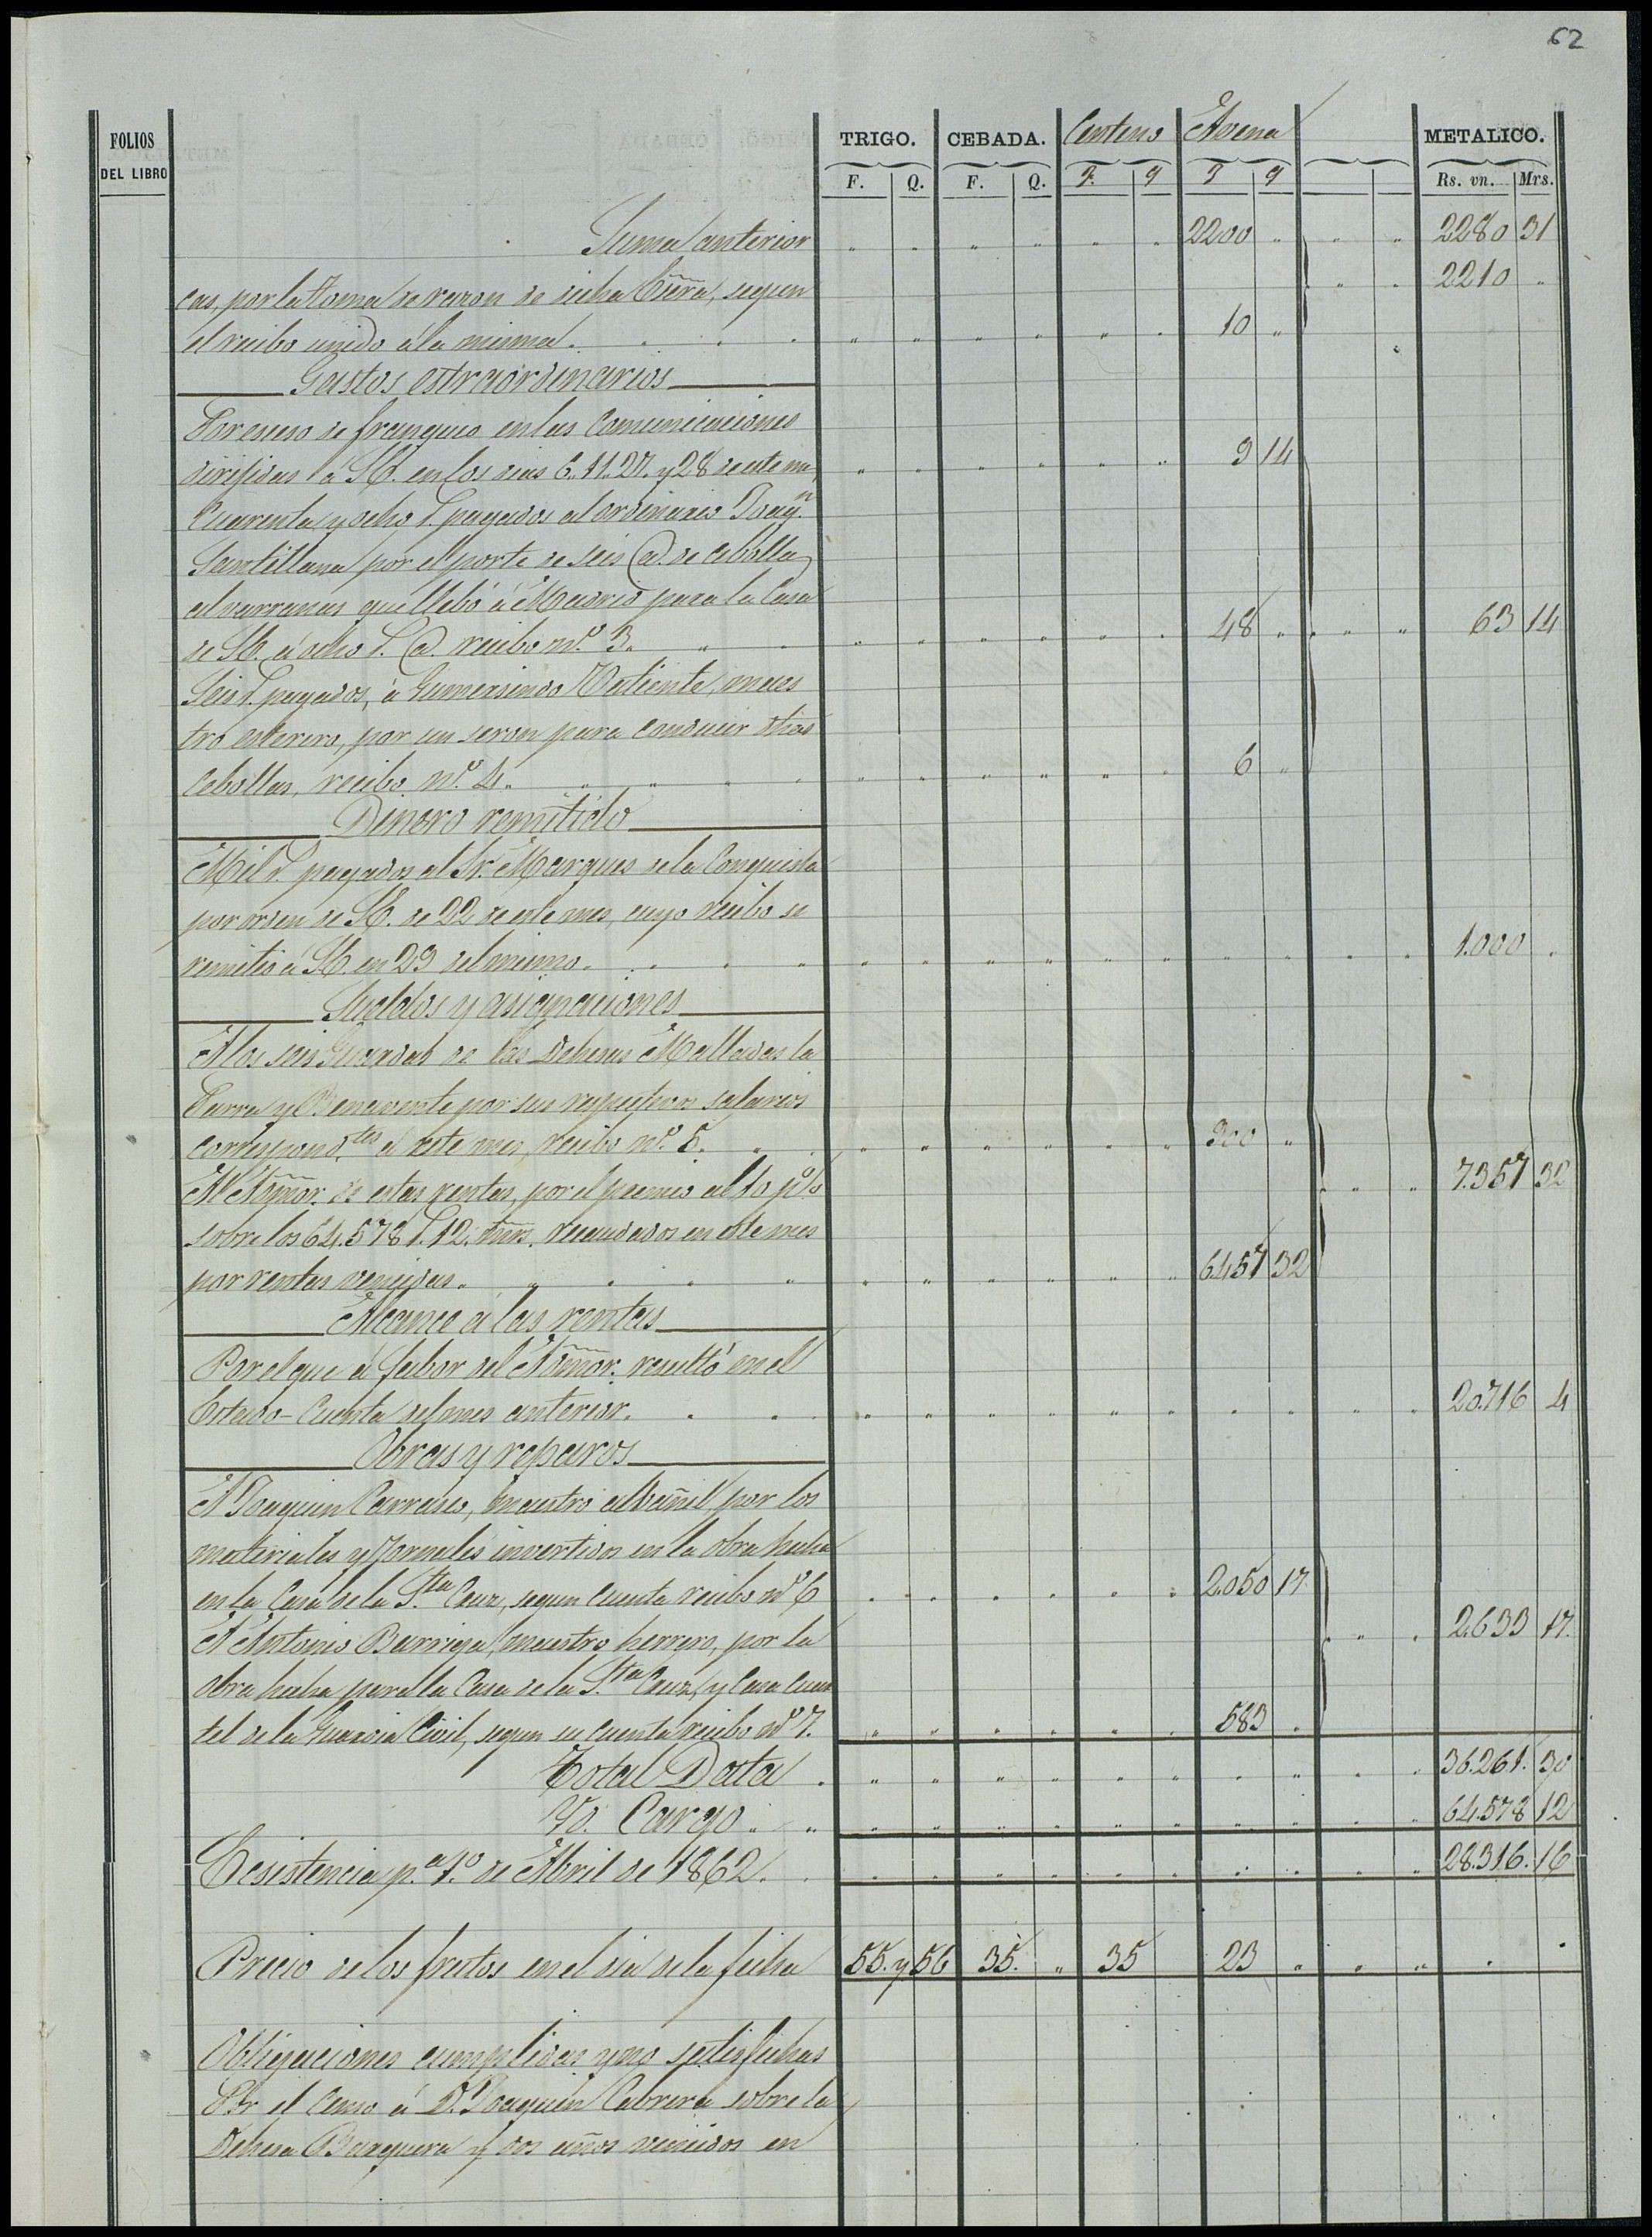 62
FOLIOS DEL LIBRO TRIGO. CEBADA. Centeno Avena METALICO.
F. Q. F. Q. F. q F q Rs. vn. Mrs.
Suma anterior " " " " " " 2200 " " " 2280 31
cas, por la toma de razon de dicha Escrª, segun " " 2210 "
el recibo unido á la misma. " " " " " " 10 "
Gastos estraordinarios
Por esceso de franqueo en las comunicaciones
dirijidas á S.E. en los dias 6. 11. 27. y 28 de este mes " " " " " " 9 14
Cuarenta y ocho r. pagados al ordinario Joaqn.
Santillana por el porte de seis @. de cebollas
albarranas que llebó á Madrid para la Casa
de S.E. á ocho r. @. recibo nº. 3. " " " " " " 48 " " " 63 14
Seis r. pagados, á Gumersindo Valiente, maes
tro esterero, por un seron para conducir dhas
cebollas, recibo nº. 4. " " " " " " 6 "
Dinero remitido
Mil r. pagados al Sr. Marques de la Conquista
por orden de S.E. de 22 de este mes, cuyo recibo se
remitió á S.E. en 29 del mismo. " " " " " " " " " " 1.000 "
Sueldos y asignaciones
A los seis Guardas de las Dehesas Malladas la
Parra y Benavente por sus respectivos salarios
correspond.tes á este mes, recibo nº. 5. " " " " " " 900 "
Al Admor. de estas rentas, por el premio al 10 p% " " 7.357 32
sobre los 64.578 r. 12. mrs. recaudados en este mes
por rentas vencidas. " " " " " " 6457 32
Alcance á las rentas
Por el que á fabor del Admor. resultó en el
Estado-Cuenta del mes anterior. " " " " " " " " " " 20.716 4
Obras y reparos
A Joaquin Carrasco, maestro albañil, por los
materiales y jornales invertidos en la obra hecha
en la Casa de la S.ta Cruz, segun cuenta recibo nº 6 " " " " " " 2.050 17
A Antonio Barriga, maestro herrero, por la " " 2.633 17.
obra hecha para la Casa de la S.ta Cruz, y Casa Cuar
tel de la Guardia Civil, segun su cuenta recibo nº 7. " " " " " " 583 "
Total Data. " " " " " " " " " " 36.261. 30
Yd. Cargo. " " " " " " " " " " 64.578 12
Ecsistencia p.a 1º. de Abril de 1862. " " " " " " " " " " 28.316. 16
Precio de los frutos en el dia de la fecha 55. y 56 35. " 35 23 " " " " "
Obligaciones cumplidas y no satisfechas
Por el Censo á D. Joaquin Cabrera sobre la
Dehesa Burguera y dos años vencidos en